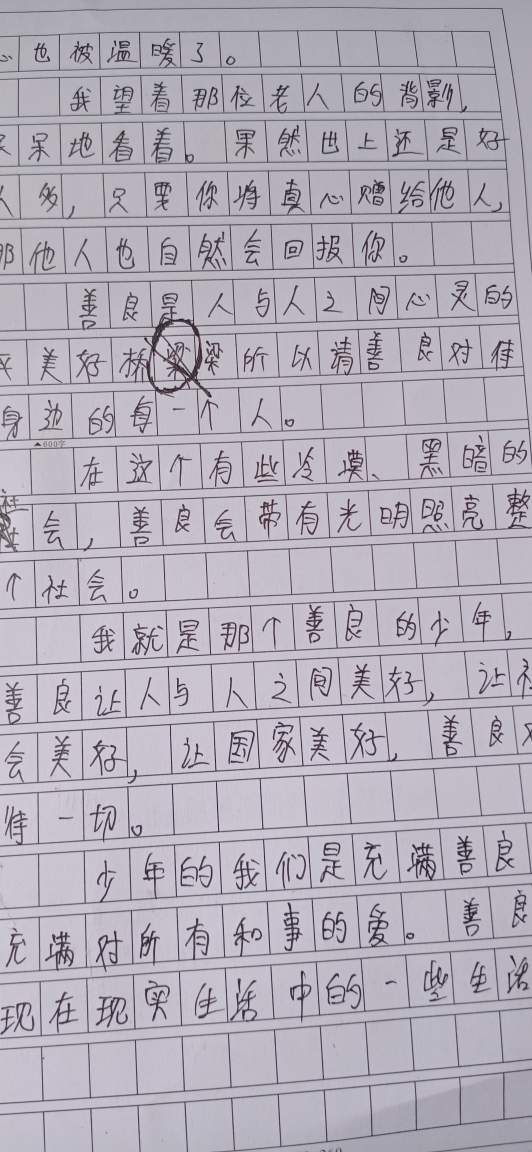 心也被温暖了。
我望着那位老人的背影,
呆呆地看着。果然世上还是好
人多,只要你将真心赠给他人,
那他人也自然会回报你。
善良是人与人之间心灵的
美好桥梁所以请善良对待
身边的每一个人。
▲600字
在这个有些冷漠、黑暗的
社会,善良会带有光明照亮整
个社会。
我就是那个善良的少年,
善良让人与人之间美好,让社
会美好,让国家美好,善良对
待一切。
少年的我们是充满善良
充满对所有和事的爱。善良
现在现实生活中的一些生活